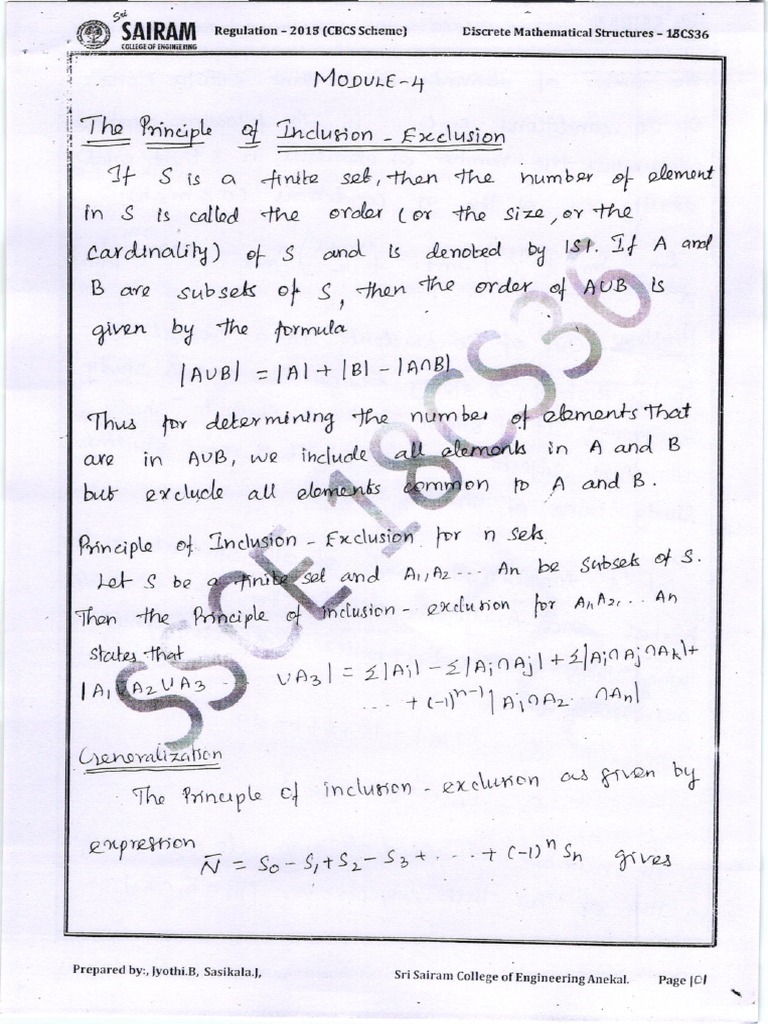 Sri
SAIRAM
COLLEGE OF ENGINEERING
Regulation – 2018 (CBCS Scheme)
Discrete Mathematical Structures – 18CS36
MODULE-4
The Principle of Inclusion - Exclusion
If S is a finite set, then the number of element
in S is called the order (or the size, or the
cardinality) of S and is denoted by |S|. If A and
B are subsets of S, then the order of A∪B is
given by the formula
|A∪B| = |A| + |B| - |A∩B|
Thus for determining the number of elements that
are in A∪B, we include all elements in A and B
but exclude all elements common to A and B.
Principle of Inclusion - Exclusion for n sets.
Let S be a finite set and A1, A2 ... An be subsets of S.
Then the Principle of inclusion - exclusion for A1, A2, ... An
states that
|A1 ∪ A2 ∪ A3 ∪ A3| = Σ|Ai| - Σ|Ai ∩ Aj| + Σ|Ai ∩ Aj ∩ Ak| +
.... + (-1)^n-1 |Ai ∩ A2 ... ∩ An|
Generalization
The Principle of inclusion - exclusion as given by
expression
N̄ = S0 - S1 + S2 - S3 + .... + (-1)^n Sn gives
SSCE 18CS36
Prepared by:, Jyothi.B, Sasikala.J,
Sri Sairam College of Engineering Anekal.
Page |01